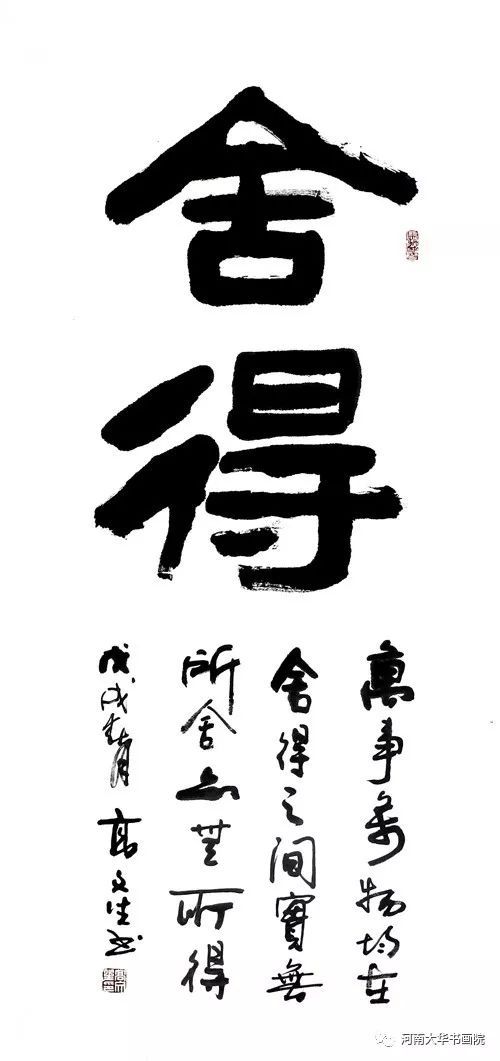 舍得
萬事萬物均在
舍得之間實無
所舍亦無所得
戊戌春月 高文书
河南大华书画院